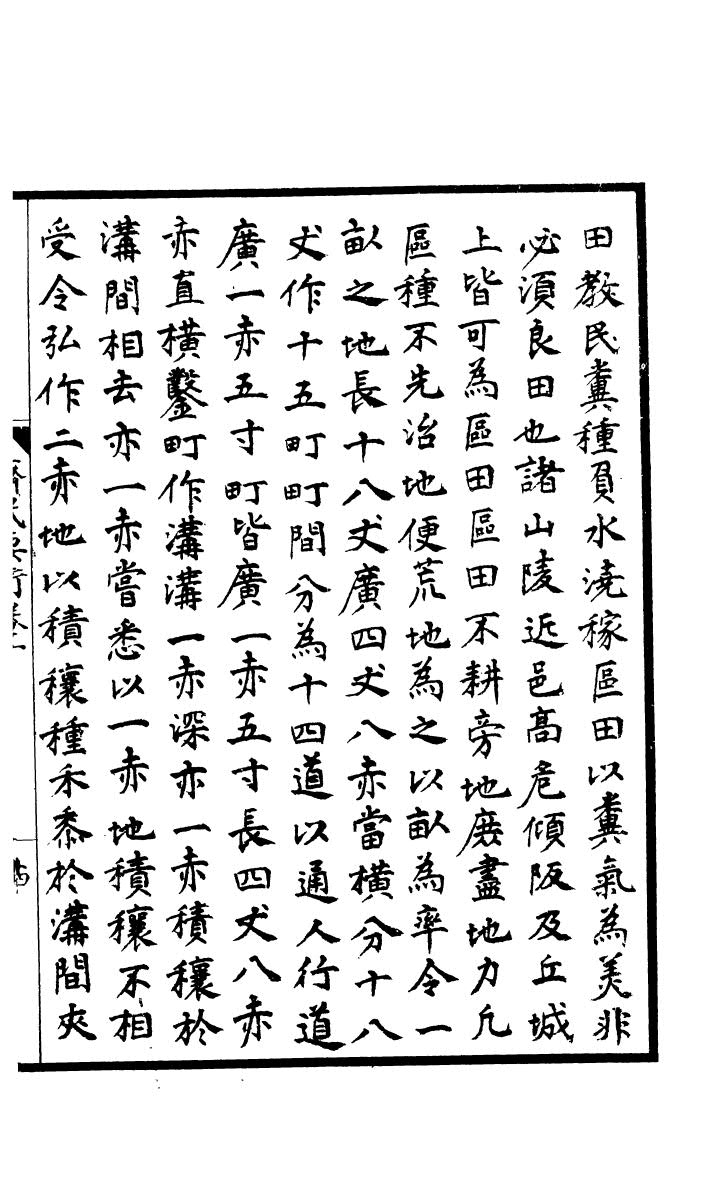 田教民糞種負水澆稼區田以糞氣為美非
必湏良田也諸山陵近邑髙危傾阪及丘城
上皆可為區田區田不耕旁地庶盡地力凢
區種不先治地便荒地為之以畝為率令一
畝之地長十八丈廣四丈八赤當橫分十八
丈作十五町町間分為十四道以通人行道
廣一赤五寸町皆廣一赤五寸長四丈八赤
赤直橫鑿町作溝溝一赤深亦一赤積穰於
溝間相去亦一赤嘗悉以一赤地積穰不相
受令弘作二赤地以積穰種禾黍於溝間夾